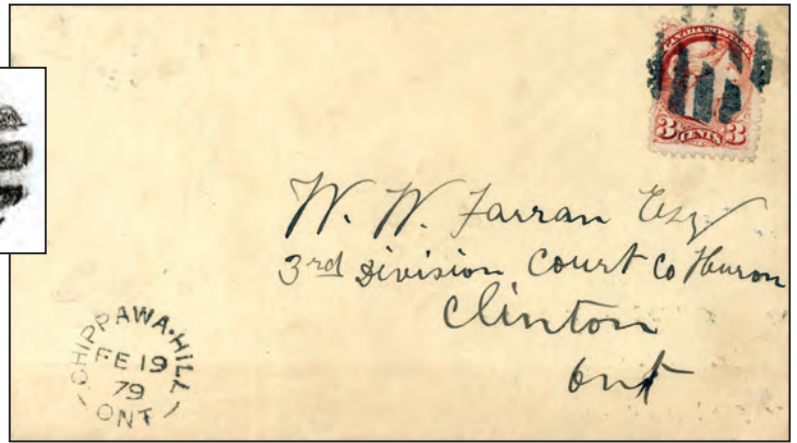 CANADA POSTAGE
3 CENTS 3
W. W. Farran Esq
3rd Division Court Co Huron
Clinton
Ont
CHIPPAWA·HILL
FE 19
79
ONT